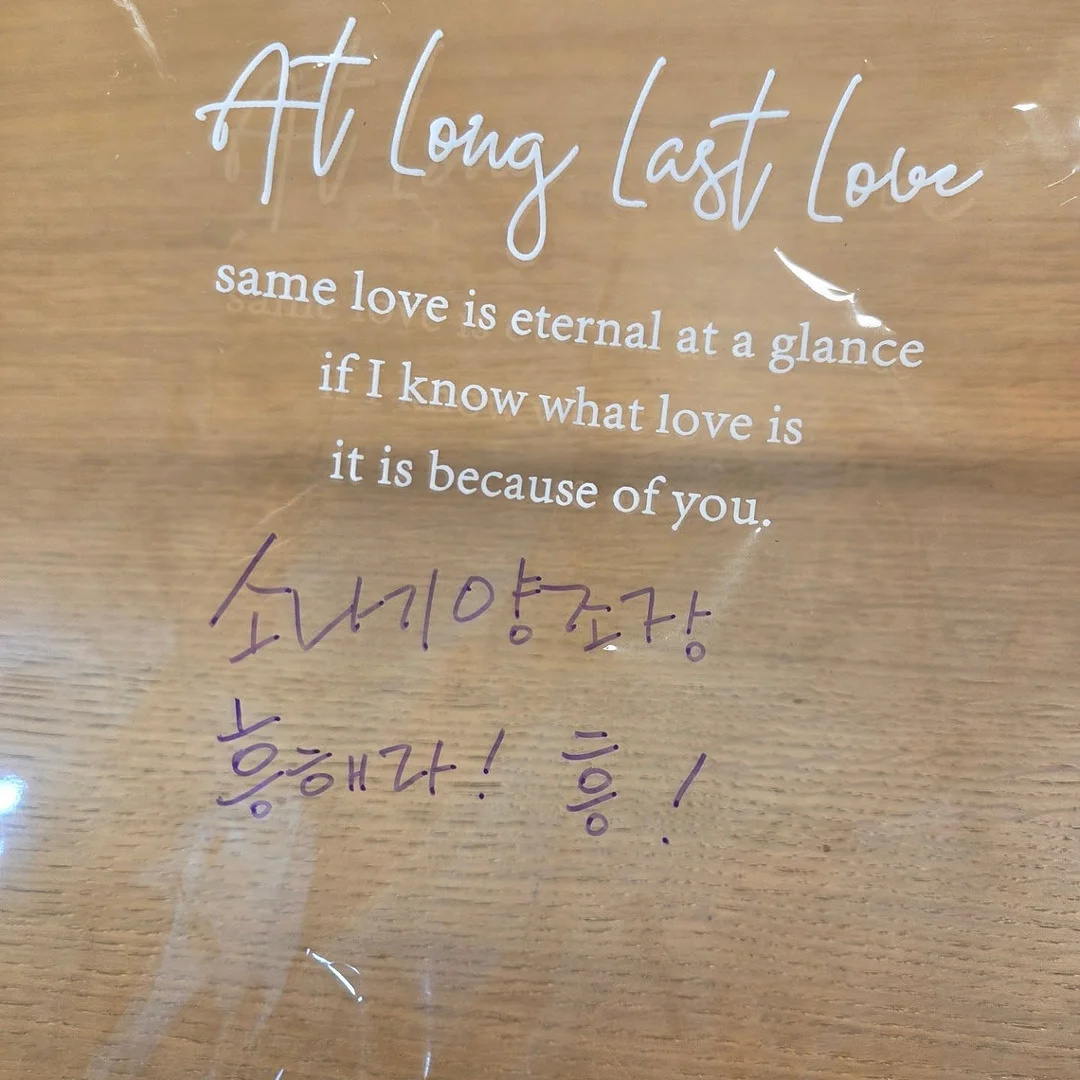 At Long Last Love
same love is eternal at a glance
if I know what love is
it is because of you.
소나기양조장
흥해라! 흥!